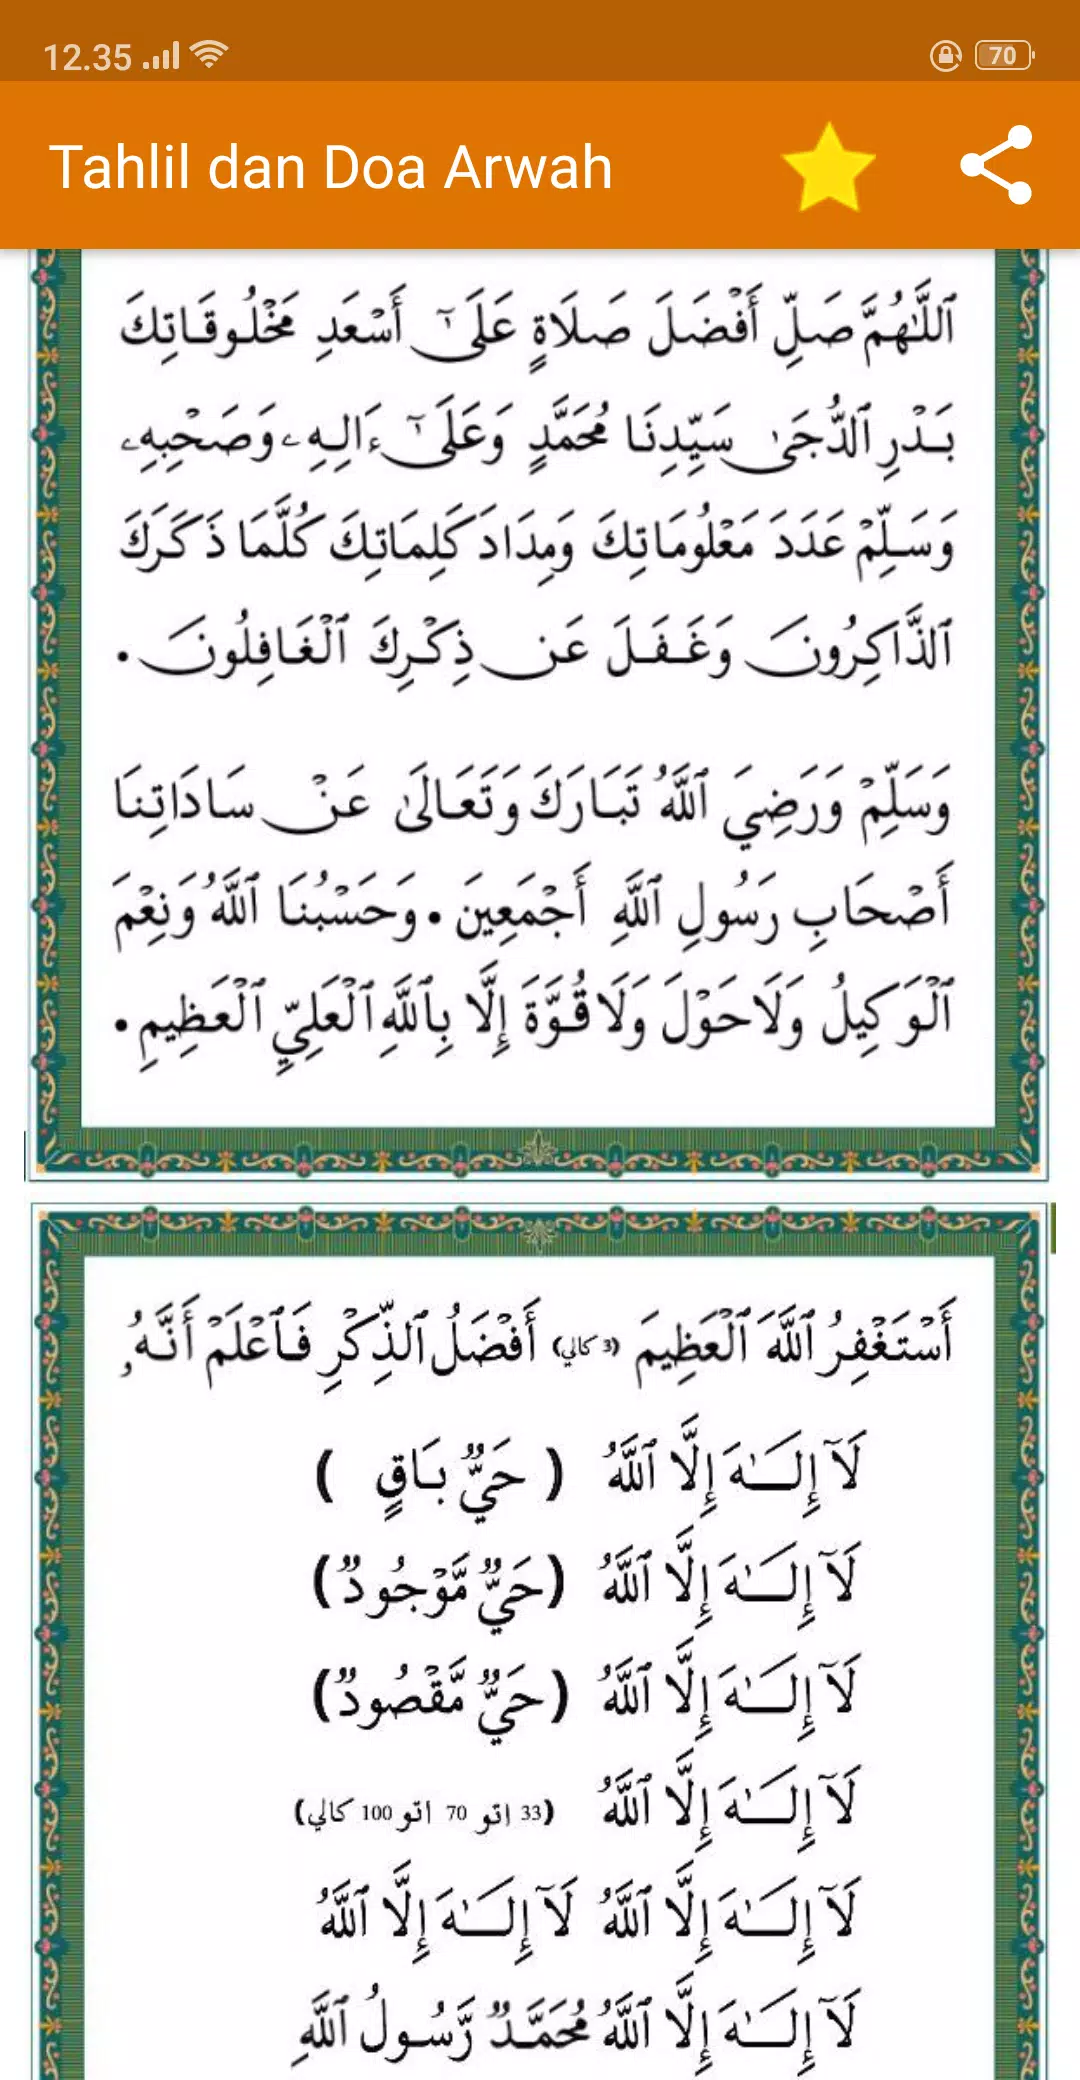 12.35
70
Tahlil dan Doa Arwah
ٱللَّٰهُمَّ صَلِّ أَفْضَلَ صَلَاةٍ عَلَىٰٓ أَسْعَدِ مَخْلُوقَاتِكَ
بَدْرِ ٱلدُّجَىٰ سَيِّدِنَا مُحَمَّدٍ وَعَلَىٰٓ ءَالِهِۦ وَصَحْبِهِۦ
وَسَلِّمْ عَدَدَ مَعْلُومَاتِكَ وَمِدَادَ كَلِمَاتِكَ كُلَّمَا ذَكَرَكَ
ٱلذَّاكِرُونَ وَغَفَلَ عَن ذِكْرِكَ ٱلْغَافِلُونَ •
وَسَلِّمْ وَرَضِيَ ٱللَّهُ تَبَارَكَ وَتَعَالَىٰ عَنْ سَادَاتِنَا
أَصْحَابِ رَسُولِ ٱللَّهِ أَجْمَعِينَ • وَحَسْبُنَا ٱللَّهُ وَنِعْمَ
ٱلْوَكِيلُ وَلَاحَوْلَ وَلَاقُوَّةَ إِلَّا بِٱللَّهِ ٱلْعَلِيِّ ٱلْعَظِيمِ •
أَسْتَغْفِرُ ٱللَّهَ ٱلْعَظِيمَ (3 كالي) أَفْضَلُ ٱلذِّكْرِ فَٱعْلَمْ أَنَّهُۥ
لَآ إِلَـٰهَ إِلَّا ٱللَّهُ ( حَيٌّ بَاقٍ )
لَآ إِلَـٰهَ إِلَّا ٱللَّهُ (حَيٌّ مَّوْجُودٌ)
لَآ إِلَـٰهَ إِلَّا ٱللَّهُ (حَيٌّ مَّقْصُودٌ)
لَآ إِلَـٰهَ إِلَّا ٱللَّهُ (33 اتو 70 اتو 100 كالي)
لَآ إِلَـٰهَ إِلَّا ٱللَّهُ لَآ إِلَـٰهَ إِلَّا ٱللَّهُ
لَآ إِلَـٰهَ إِلَّا ٱللَّهُ مُحَمَّدٌ رَّسُولُ ٱللَّهِ